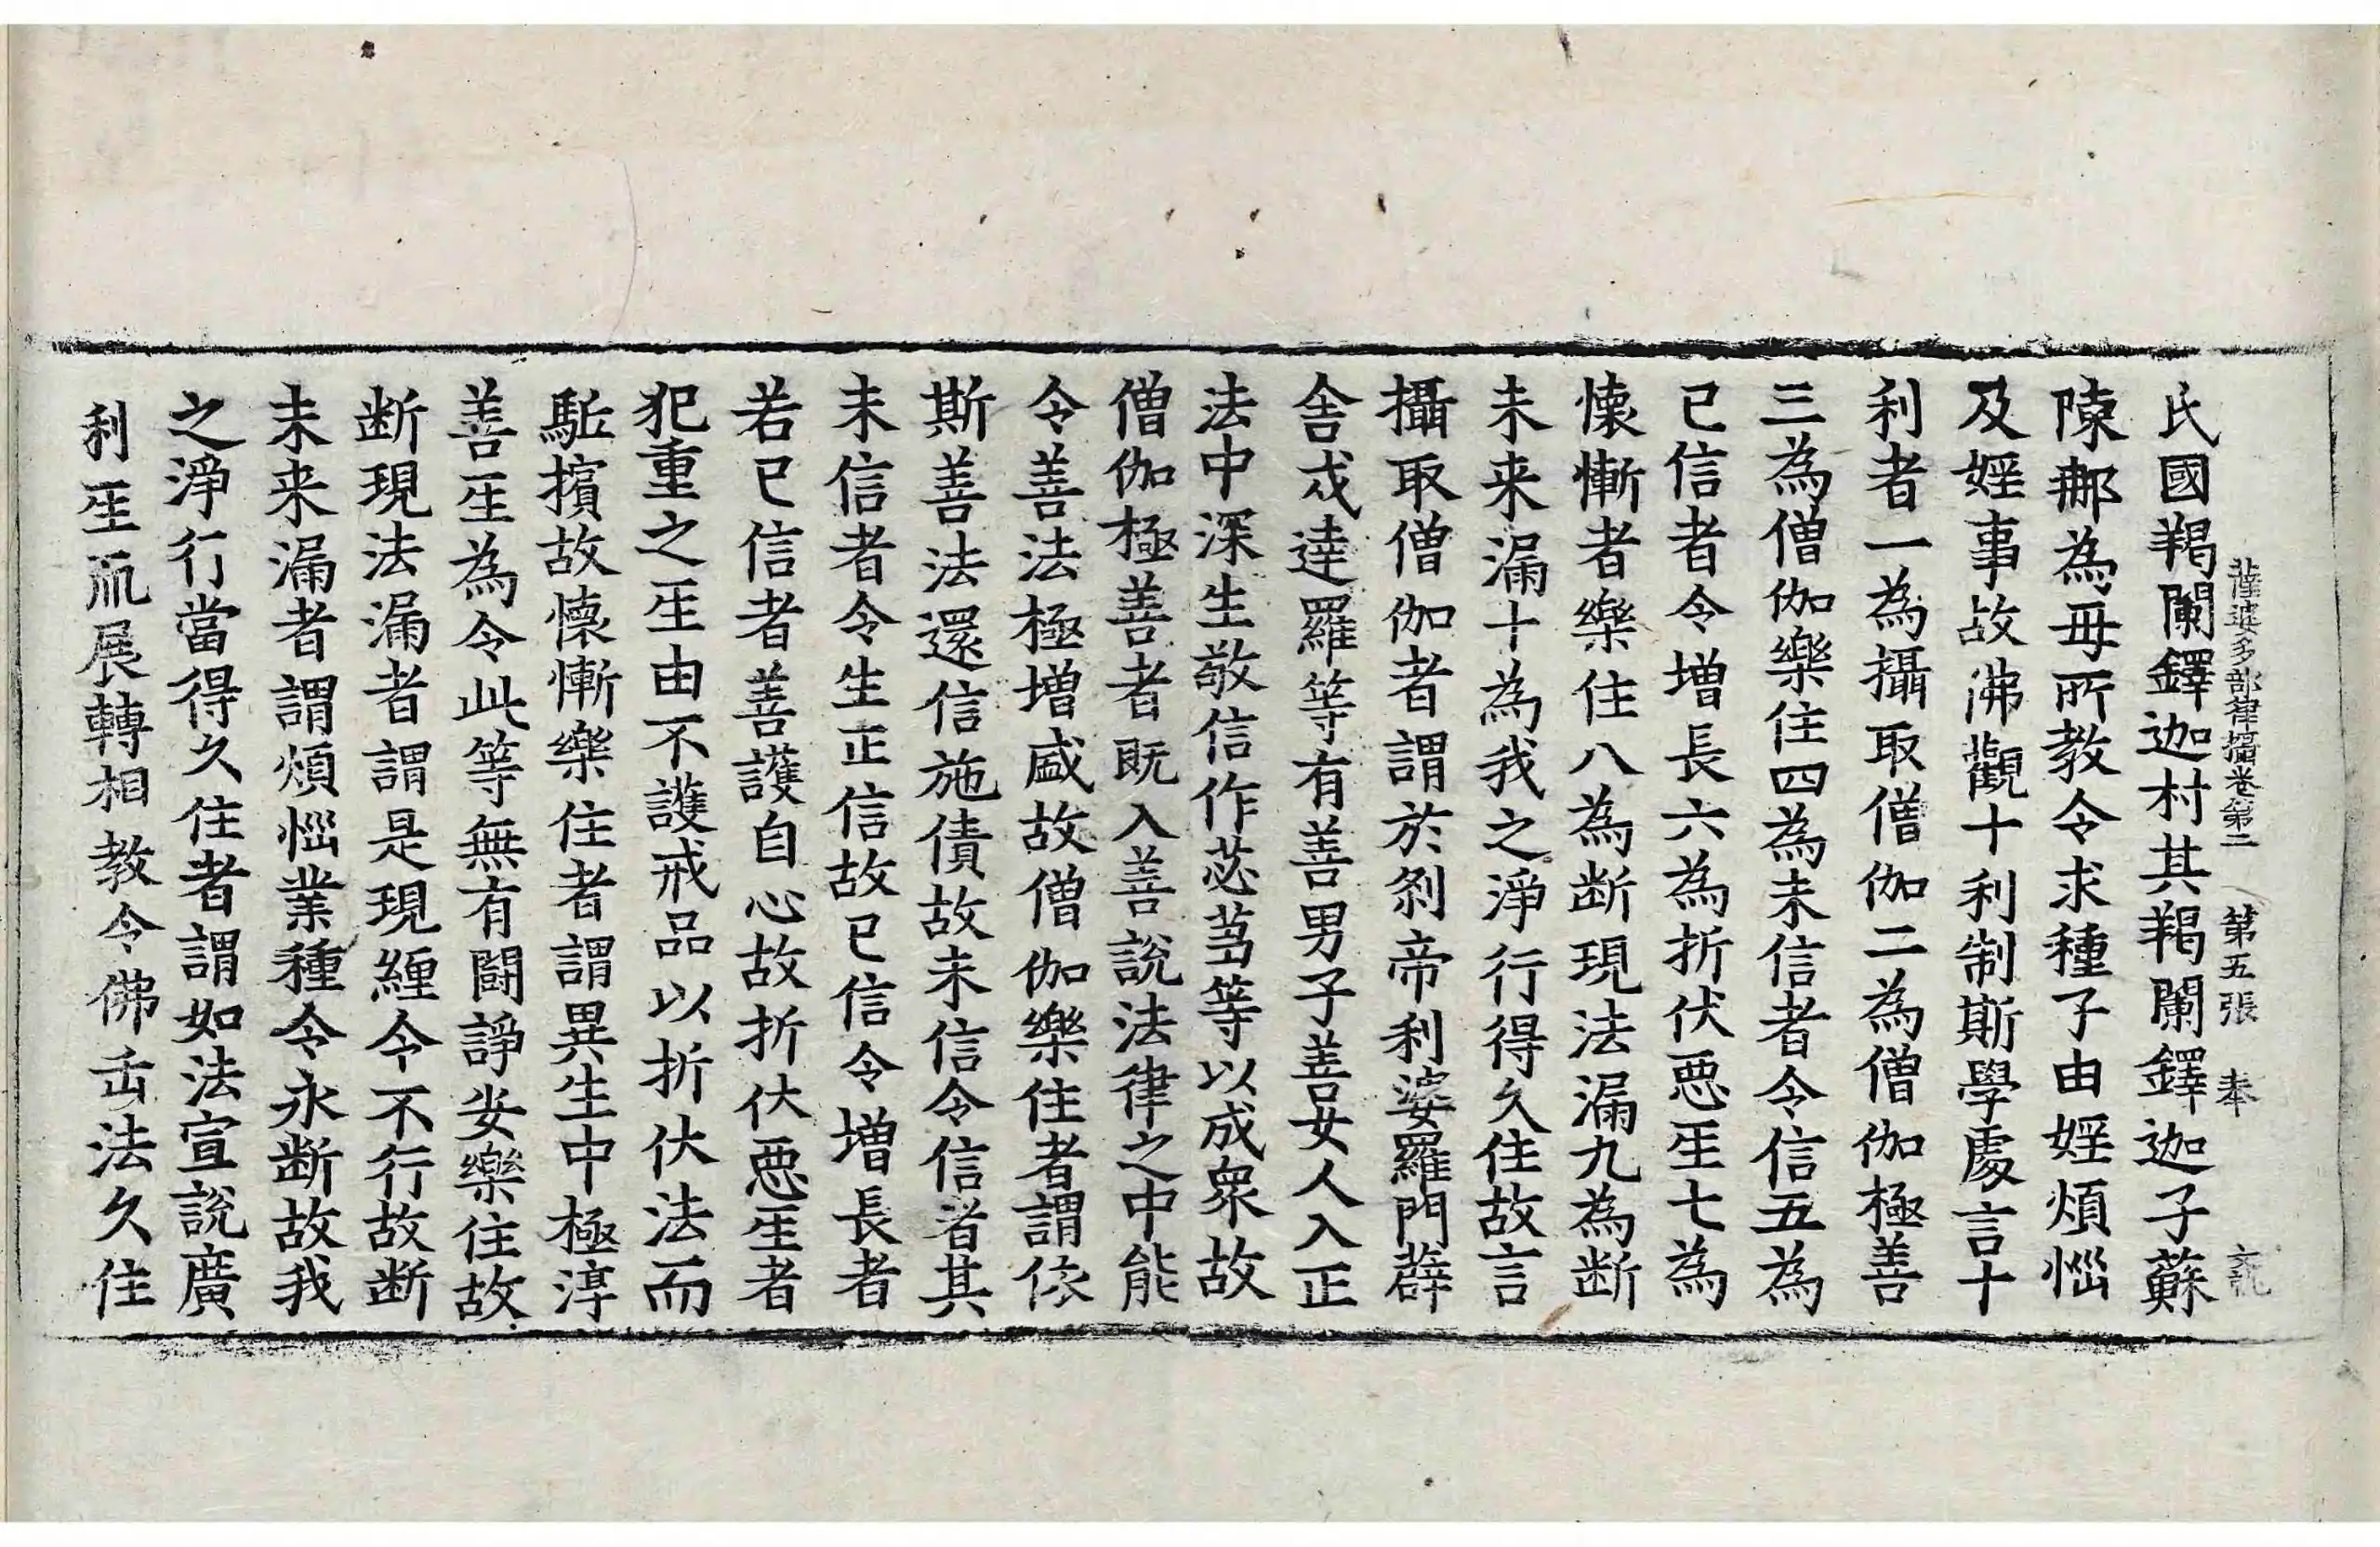 薩婆多部律攝卷第二　第五張　奉
氏國羯闌鐸迦村其羯闌鐸迦子蘇
陳𨚗為母所教令求種子由婬煩惱
及婬事故沸觀十利制斯學處言十
利者一為攝取僧伽二為僧伽極善
三為僧伽樂住四為未信者令信五為
已信者令増長六為折伏惡𤯔七為
懐慚者樂住八為断現法漏九為断
未来漏十為我之淨行得久住故言
攝取僧伽者謂於剎帝利婆羅門薜
舍戍達羅等有善男子善女人入正
法中深生敬信作苾蒭等以成衆故
僧伽極善者既入善說法律之中能
令善法極増盛故僧伽樂住者謂依
斯善法還信施債故未信令信者其
未信者令生正信故已信令増長者
若已信者善護自心故折伏惡𤯔者
犯重之𤯔由不護戒品以折伏法而
駈擯故懐慚樂住者謂異生中極淳
善𤯔為令此等無有鬪諍安樂住故
断現法漏者謂是現纒令不行故断
未来漏者謂煩惱業種令永断故我
之淨行當得久住者謂如法宣說廣
利𤯔𠂢展轉相教令佛㠯法久住